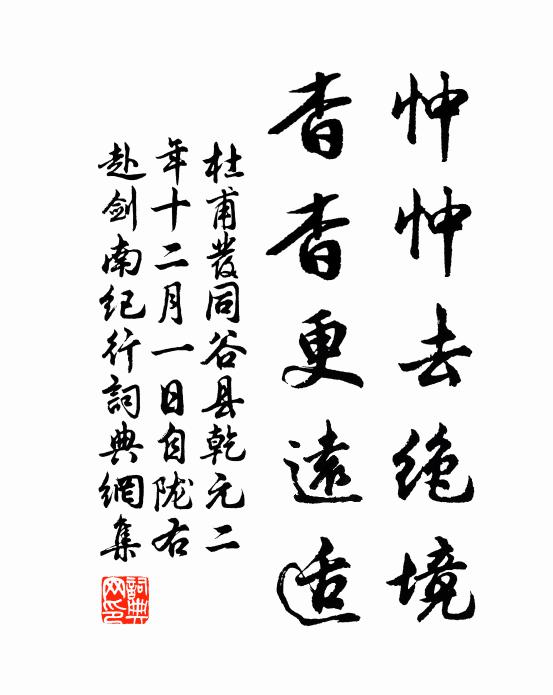 忡忡去绝境
杳杳更遠适
杜甫發同谷县乾元二
年十二月一日自陇右
赴剑南纪行詞典網集